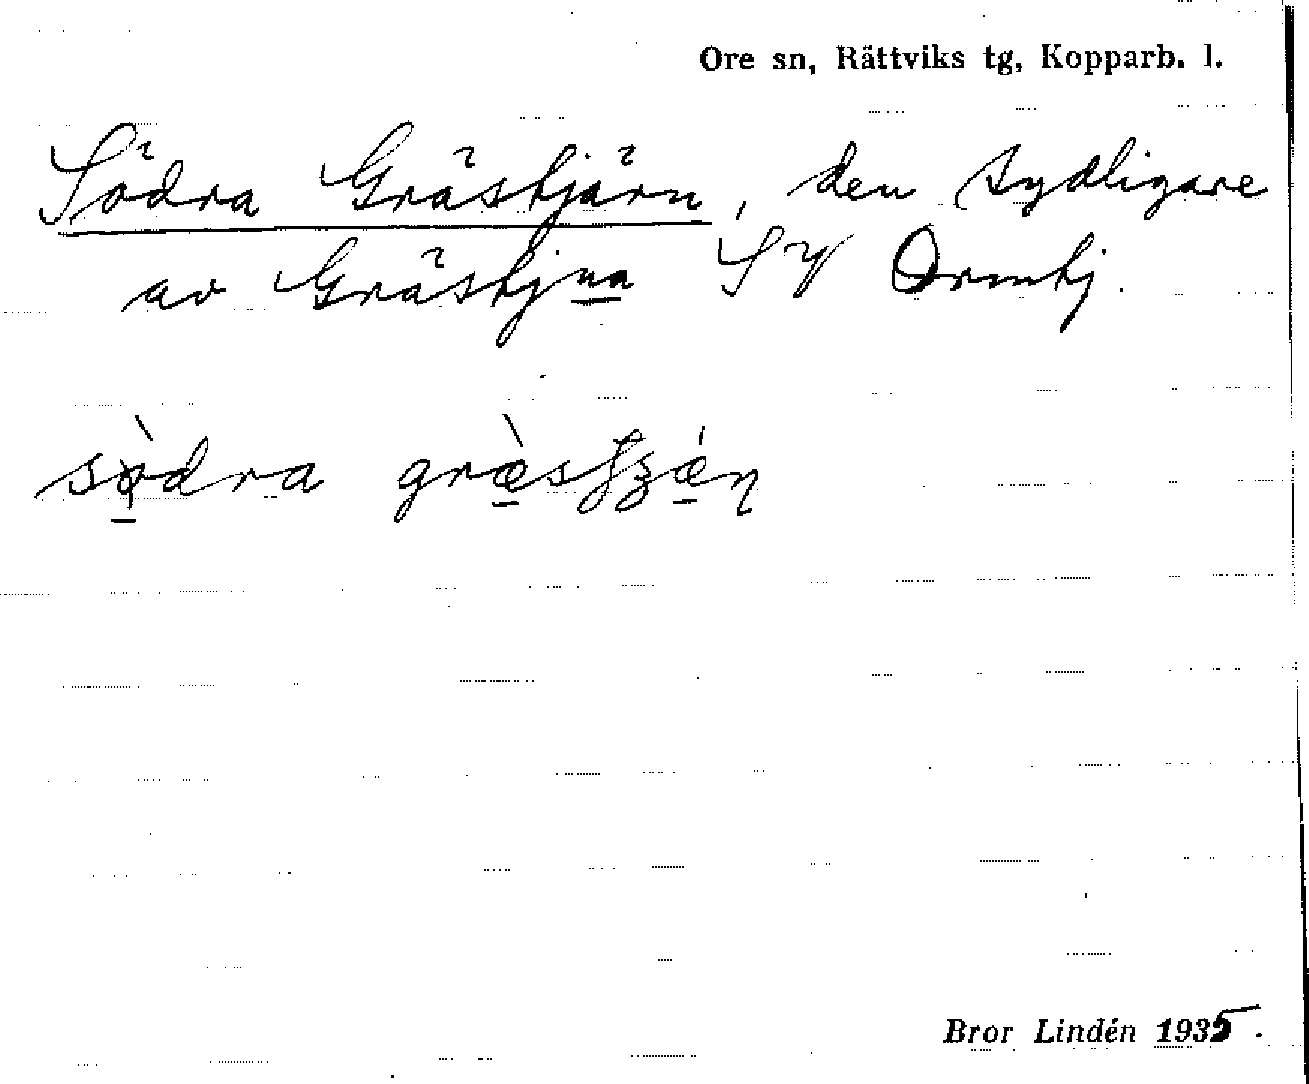 Ore sn, Rättviks tg, Kopparb. l.
Södra Grästjärn, den sydligare
av Grästjna SV Ormtj.
södra
Bror Lindén 1935.